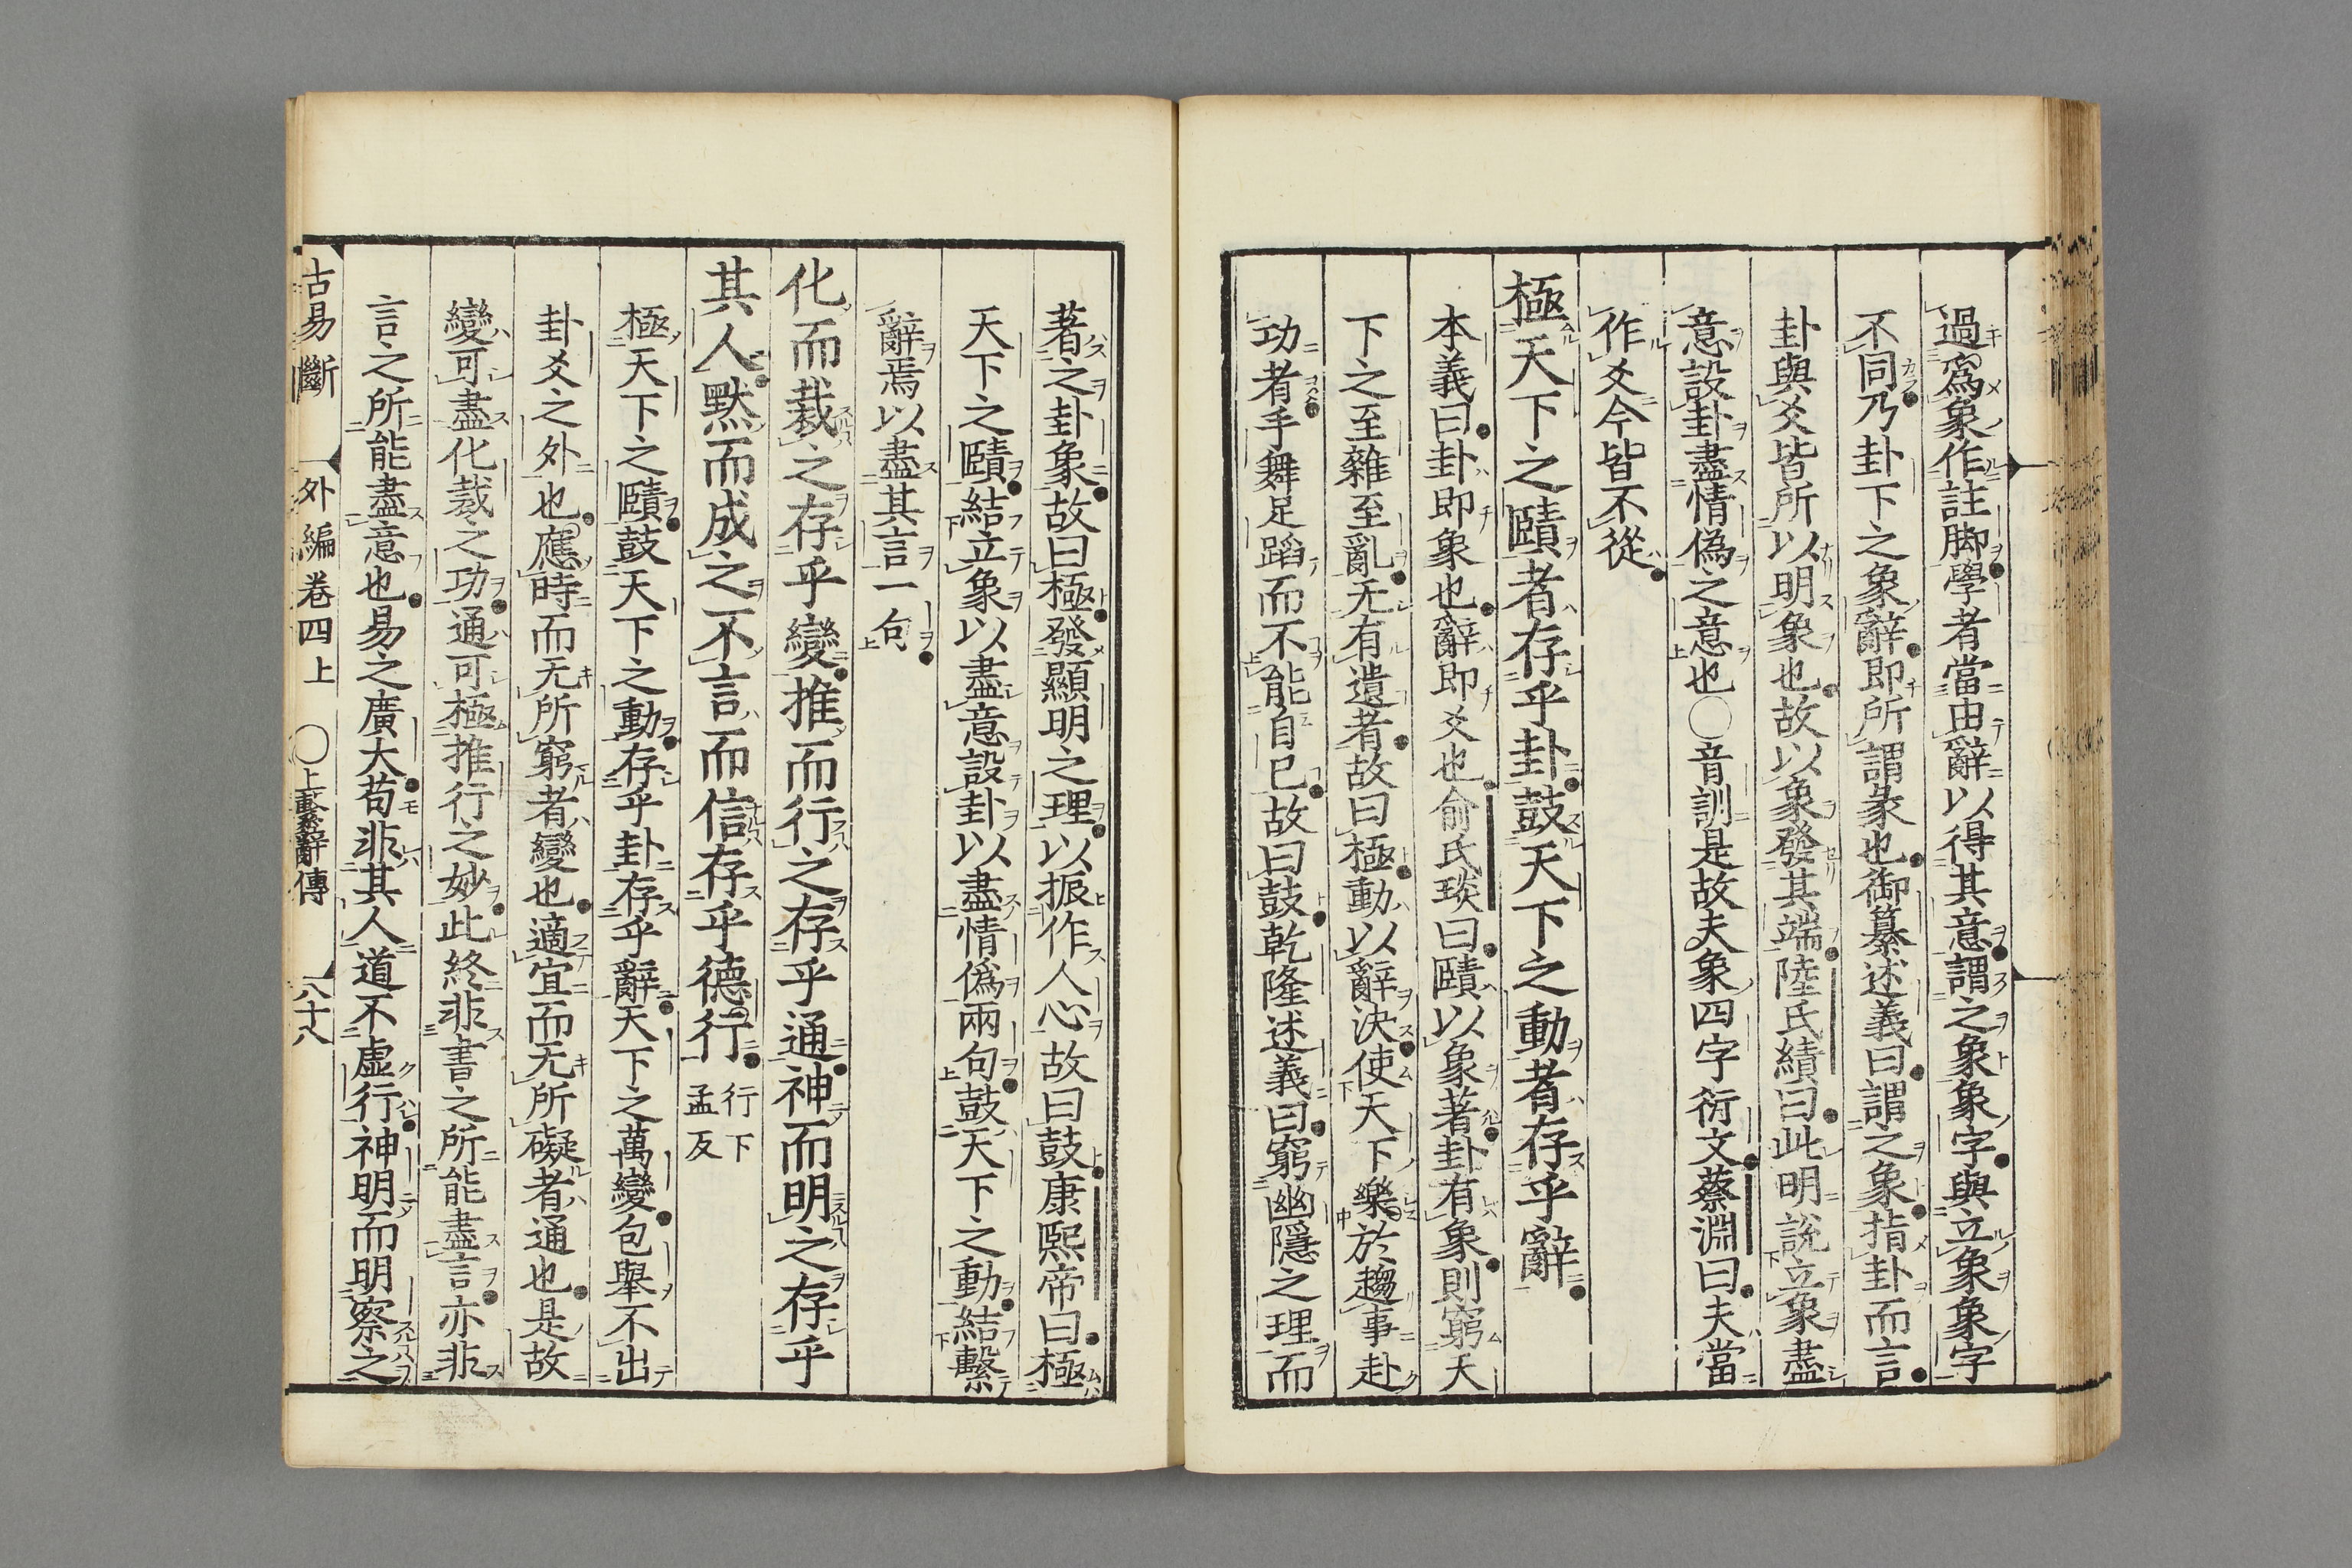 過爲象作註脚學者當由辭以得其意謂之象象字與立象象字
不同乃卦下之象辭即所謂彖也御纂述義曰謂之象指卦而言
卦與爻皆所以明象也故以象發其端陸氏績曰此明說立象盡
意設卦盡情僞之意也〇音訓是故夫象四字衍文蔡淵曰夫當
作爻今皆不從
極天下之賾者存乎卦鼓天下之動者存乎辭
本義曰卦即象也辭即爻也俞氏琰曰賾以象著卦有象則窮天
下之至雜至亂无有遺者故曰極動以辭決使天下樂於趨事赴
功者手舞足蹈而不能自已故曰鼓乾隆述義曰窮幽隱之理而
著之卦象故曰極發顯明之理以振作人心故曰鼓康熙帝曰極
天下之賾結立象以盡意設卦以盡情僞兩句鼓天下之動結繫
辭焉以盡其言一句
化而裁之存乎變推而行之存乎通神而明之存乎
其人默而成之不言而信存乎德行 行下孟反
極天下之賾鼓天下之動存乎卦存乎辭天下之萬變包舉不出
卦爻之外也應時而无所窮者變也適宜而无所礙者通也是故
變可盡化裁之功通可極推行之妙此終非書之所能盡言亦非
言之所能盡意也易之廣大苟非其人道不虛行神明而明察之
古易斷 外編卷四上 〇上繫辭傳 六十八